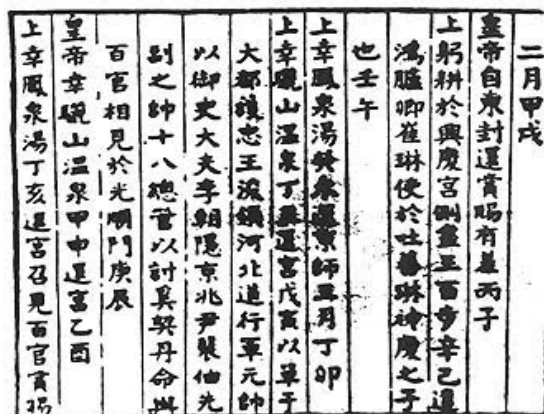 二月甲戌
皇帝自東封還賞賜有差丙子
上躬耕於興慶宮側盡三百步辛已遣
鴻臚卿崔琳使於吐蕃琳神慶之子
也壬午
上幸鳳泉湯癸未還京師丑月丁卯
上幸驪山溫泉丁丑還宮戊寅以單于
大都護忠王浚領河北道行軍元帥
以御史大夫李朝隱京兆尹裴伷先
副之帥十八總管以討奚契丹命與
百官相見於光順門庚辰
皇帝幸驪山溫泉甲申還宮乙酉
上幸鳳泉湯丁亥還宮召見百官賞賜